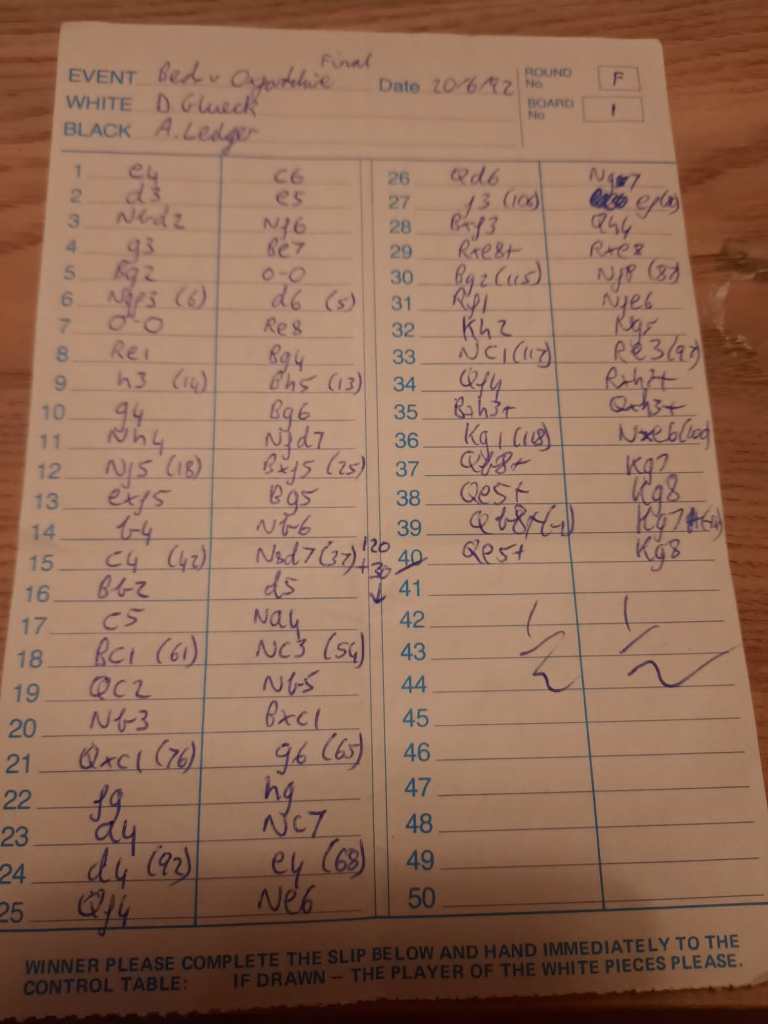 Final
EVENT Bed v Oxfordshire Date 20/6/92 ROUND No F
WHITE D. Glueck BOARD No 1
BLACK A. Ledger
1 e4 c6
2 d3 e5
3 Nbd2 Nf6
4 g3 Be7
5 Bg2 0-0
6 Ngf3 (6) d6 (5)
7 0-0 Re8
8 Re1 Bg4
9 h3 (14) Bh5 (13)
10 g4 Bg6
11 Nh4 Nfd7
12 Nf5 (18) Bxf5 (25)
13 exf5 Bg5
14 b4 Nb6
15 c4 (42) N8d7 (37)
16 Bb2 d5
17 c5 Na4
18 Bc1 (61) Nc3 (54)
19 Qc2 Nb5
20 Nb3 Bxc1
21 Qxc1 (76) g6 (65)
22 fg hg
23 d4 Nc7
24 d4 (92) e4 (68)
25 Qf4 Ne6
120
+30
26 Qd6 Ng7
27 f3 (106) ef
28 Bxf3 Qh4
29 Rxe8+ Rxe8
30 Bg2 (115) Nf8 (87)
31 Rf1 Nfe6
32 Kh2 Ng5
33 Nc1 (117) Re3 (97)
34 Qf4 Rxh3+
35 Bxh3+ Qxh3+
36 Kg1 (118) Nxe6 (100)
37 Qb8+ Kg7
38 Qe5+ Kg8
39 Qb8+ (-1) Kg7
40 Qe5+ Kg8
41
42 1/2 1/2
43
44
45
46
47
48
49
50
WINNER PLEASE COMPLETE THE SLIP BELOW AND HAND IMMEDIATELY TO THE
CONTROL TABLE: IF DRAWN – THE PLAYER OF THE WHITE PIECES PLEASE.